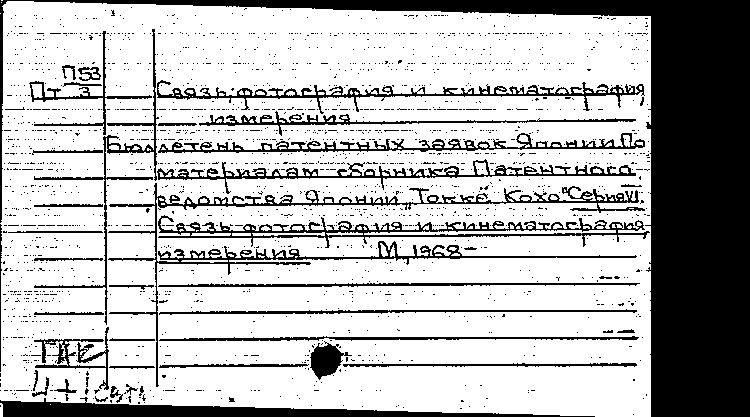 П53
Пт 3
Связь, фотография и кинематография,
измерения
Бюллетень патентных заявок Японии. По
материалам сборника Патентного
ведомства Японии „Токкё Кохо" Серия VI.
Связь, фотография и кинематография,
измерения М, 1968-
4+1